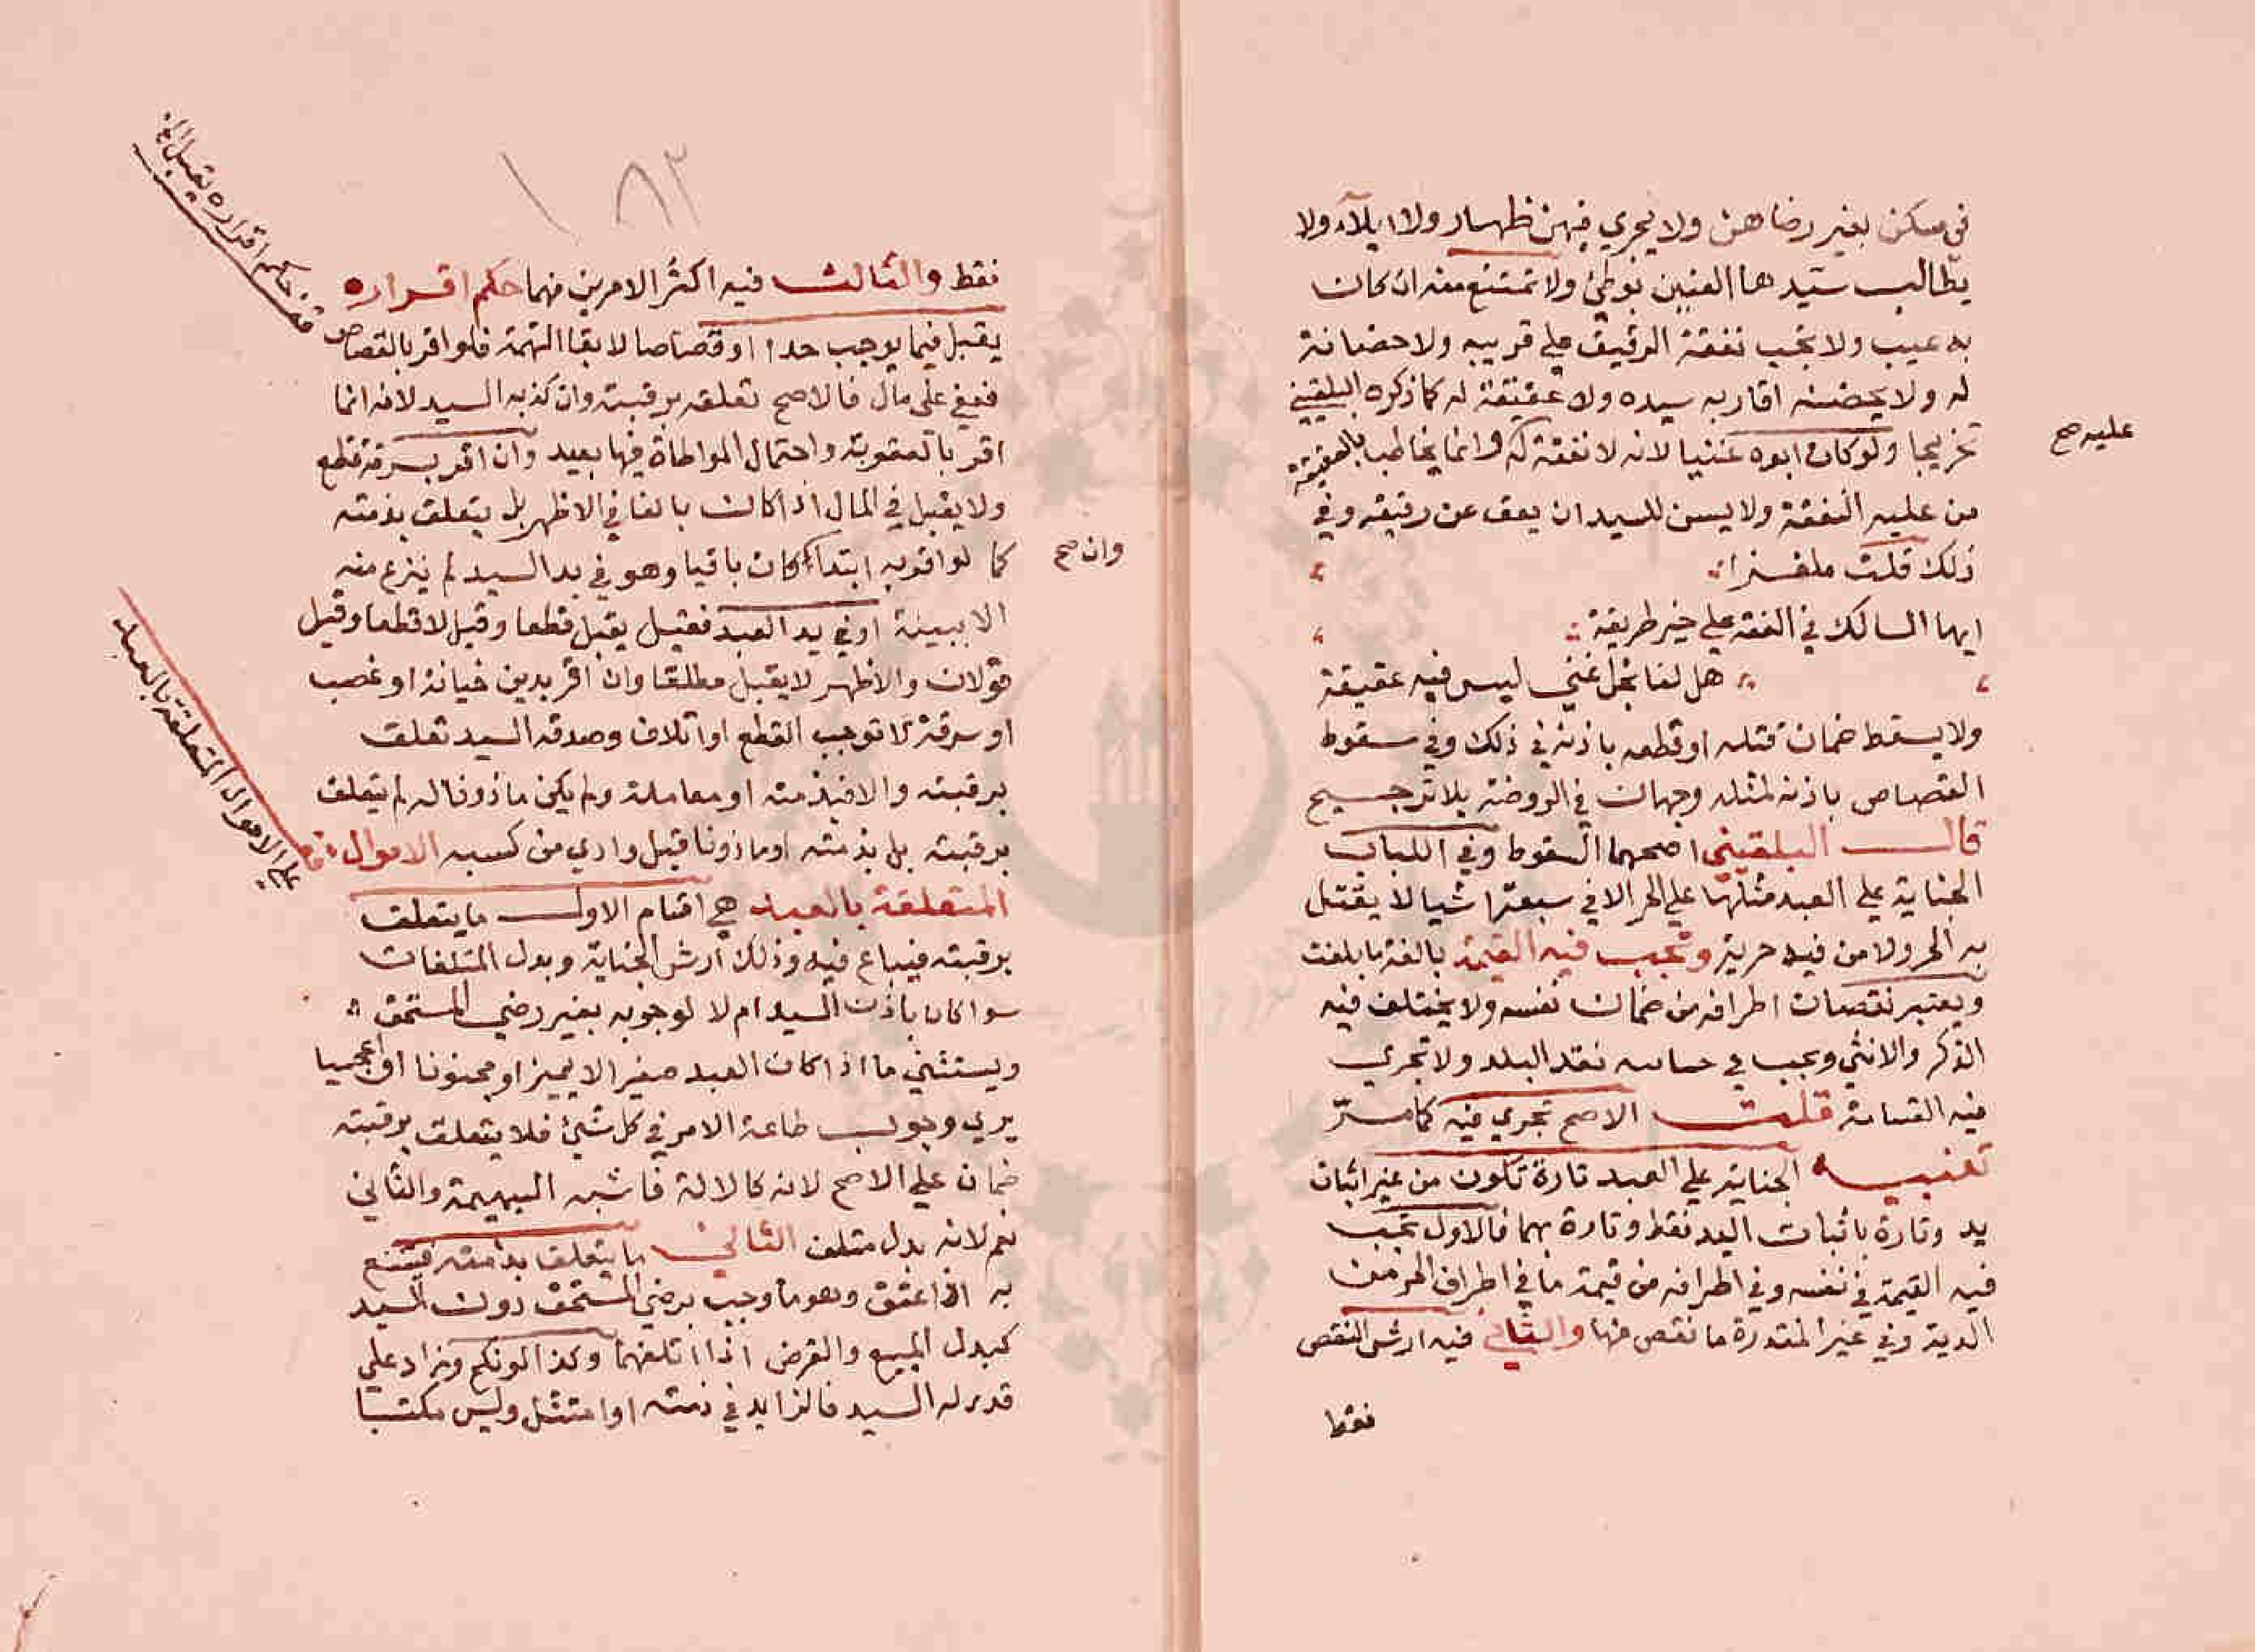 في مسكن بغير رضاهن ولا يجري فيهن ظهار ولا ايلاء ولا
يطالب سيدها العنين بوطئ ولا تمتنع منه ان كان
به عيب ولا تجب نفقة الرقيق علي قريبه ولا حضانة
له ولا يحضنه اقاربه سيده ولا عقيقة له كما ذكره البلقيني
تخريجا ولو كان ابوه غنيا لانه لا نفقة له وانما يخاطب بالعقيقة
عليه صح
من عليه النفقة ولا يسن للسيد ان يعق عن رقيقه وفي
ذلك قلت ملغزا
ايها السالك في الفقه علي خير طريقة
هل لنا نجل غني ليس فيه عقيقة
ولا يسقط ضمان قتله او قطعه باذنه في ذلك وفي سقوط
القصاص باذنه لمثله وجهان في الروضة بلا ترجيح
قال البلقيني اصحهما السقوط وفي اللباب
الجناية علي العبد مثلها علي الحر الا في سبعة اشيا لا يقتل
به الحر ولا من فيه حرية وتجب فيه القيمة بالغة ما بلغت
ويعتبر نقصان اطرافه من ضمان نفسه ولا يختلف فيه
الذكر والانثي ويجب في نقد البلد ولا تجري
فيه القسامة قلت الاصح تجري فيه كما مر
تنبيه الجناية علي العبد تارة تكون من غير اثبات
يد وتارة باثبات اليد فقط وتارة بهما فالاول تجب
فيه القيمة في نفسه وفي اطرافه من قيمة ما في اطراف الحر من
الدية وفي غير المقدرة ما نقص منها والثاني فيه ارش النقص
فقط
١٨٢
فقط والثالث فيه اكثر الامرين منهما حكم اقراره
قف حكم اقراره يقبل
يقبل فيما يوجب حدا او قصاصا لا بقا التهمة فلو اقر بالقصاص
فعفي علي مال فالاصح تعلقه برقبته وان كذبه السيد لانه انما
اقر بالعقوبة واحتمال المواطاة فيها بعيد وان اقر بسرقة قطع
ولا يقبل في المال اذا كان بالغا في الاظهر بل يتعلق بذمته
كما لو اقر به ابتداء كان باقيا وهو في يد السيد لم ينزع منه
وان صح
الا ببينة او في يد العبد فقيل يقبل قطعا وقيل لا قطعا وقيل
قولان والاظهر لا يقبل مطلقا وان اقر بدين خيانة او غصب
او سرقة لا توجب القطع او اتلاف وصدقه السيد تعلق
برقبته والا فبذمته او معاملة ولم يكن ماذونا له لم يتعلق
برقبته بل بذمته او ماذونا قبل وادي من كسبه الاموال
علي الاموال المتعلقة بالعبد
المتعلقة بالعبد هي اقسام الاول ما يتعلق
برقبته فيباع فيه وذلك ارش الجناية وبدل المتلفات
سوا كان باذن السيد ام لا لوجوبه بغير رضي المستحق
ويستثني ما اذا كان العبد صغيرا لا يميز او مجنونا او اعجميا
يري وجوب طاعة الامر في كل شئ فلا يتعلق برقبته
ضمان علي الاصح لانه كالالة فاشبه البهيمة والثاني
نعم لانه بدل متلف الثاني ما يتعلق بذمته فيتبع
به اذا عتق وهو ما وجب برضي المستحق دون السيد
كبدل المبيع والقرض اذا اتلفهما وكذا لو نكح وزاد علي
قدر له السيد فالزايد في ذمته او امتثل وليس مكتسبا